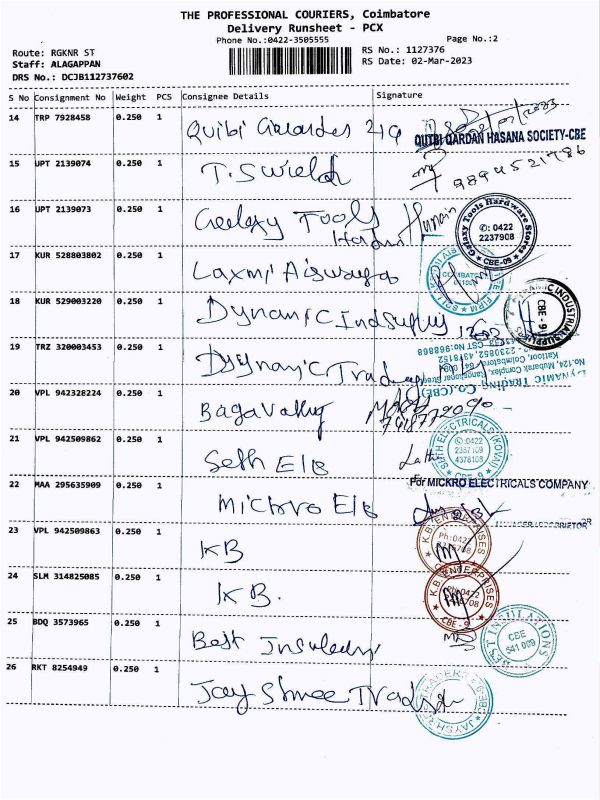 THE PROFESSIONAL COURIERS, Coimbatore
Delivery Runsheet - PCX
Phone No.:0422-3505555
Page No.:2
Route: RGKNR ST
RS No.: 1127376
Staff: ALAGAPPAN
RS Date: 02-Mar-2023
DRS No.: DCJB112737602
S No Consignment No Weight PCS Consignee Details Signature
14 TRP 7928458 0.250 1
QUTBI QARDAN HASANA SOCIETY-CBE
15 UPT 2139074 0.250 1 T. Swield
9894521786
16 UPT 2139073 0.250 1 Geelaxy Tools
Galaxy Tools Hardware Stores
✆: 0422
2237908
CBE-09
17 KUR 528803802 0.250 1 Laxmi
18 KUR 529003220 0.250 1 Dynamic
DYNAMIC INDUSTRIAL SUPPLIERS
CBE - 9
19 TRZ 320003453 0.250 1 Dynamic
DYNAMIC TRADING CO.(CBE)
20 VPL 942328224 0.250 1
21 VPL 942509862 0.250 1 Seth Els
SETH ELECTRICALS (KOVAI)
✆:0422
2357109
4378108
CBE-9
22 MAA 295635909 0.250 1 Mickro Els
For MICKRO ELECTRICALS COMPANY
23 VPL 942509863 0.250 1 KB
K.B. ENTERPRISES
Ph:0422
24 SLM 314825085 0.250 1 KB.
K.B. ENTERPRISES
Ph:0422
CBE - 9
25 BDQ 3573965 0.250 1 Best
BEST INSULATIONS
CBE
641 009
26 RKT 8254949 0.250 1 Jay Shree